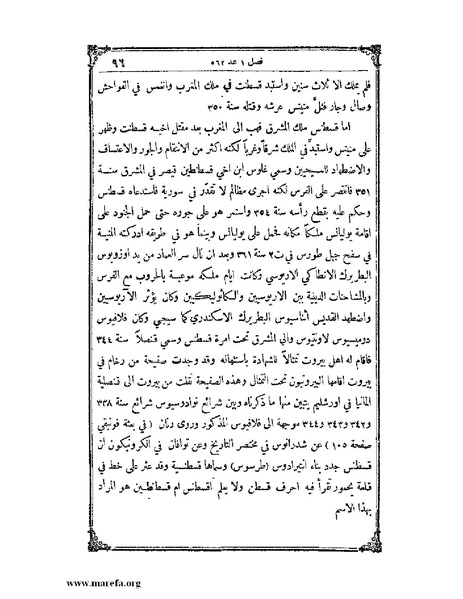 فصل ١ عد ٥٦٢ ٩٦
فلم يملك الا ثلاث سنين واستبد قسطنت في ملك المغرب وانغمس في الفواحش
وصال وجار فثلَّ منيس عرشه وقتله سنة ٣٥٠
اما قسطنس ملك المشرق فهب الى المغرب بعد مقتل اخيه قسطنت وظهر
على منيس واستبدَّ في الملك شرقاً وغرباً لكنه اكثر من الانتقام والجور والاعتساف
والاضطهاد للمسيحيين وسمي غلوس ابن اخي قسطنطين قيصر في المشرق سنة
٣٥١ فانتصر على الفرس لكنه اجرى مظالم لا تقدَّر في سورية فاستدعاه قسطنس
وحكم عليه بقطع رأسه سنة ٣٥٤ واستمر هو على جوره حتى حمل الجنود على
اقامة يوليانس ملكاً مكانه فحمل على يوليانس وبينما هو في طريقه ادركته المنية
في سفح جبل طورس في ت٢ سنة ٣٦١ وبعد ان نال سر العماد من يد اوزويوس
البطريرك الانطاكي الاريوسي وكانت ايام ملكه موعبة بالحروب مع الفرس
وبالمشاحنات الدينية بين الاريوسيين والكاثوليكيين وكان يؤثر الآريوسيين
واضطهد القديس اثناسيوس البطريرك الاسكندري كما سيجي وكان فلافيوس
دوميسيوس لاونتيوس والي المشرق تحت امرة قسطنس وسمي قنصلاً سنة ٣٤٤
فاقام له اهل بيروت تمثالاً للشهادة باستئهاله وقد وجدت صفيحة من رخام في
بيروت اقامها البيروتيون تحت التمثال وهذه الصفيحة نقلت من بيروت الى قنصلية
المانيا في اورشليم يتبين منها ما ذكرناه وبين شرائع توادوسيوس شرائع سنة ٣٣٨
و٣٤٢ و٣٤٣ و٣٤٤ موجهة الى فلافيوس المذكور وروى رنان ( في بعثة فونيقي
صفحة ١٠٥ ) عن شدرانوس في مختصر التاريخ وعن توافان في الكرونيكون ان
قسطنس جدد بناء انتيرادوس (طرسوس) وسماها قسطنسية وقد عثر على خط في
قلعة يحمور تقرأ فيه احرف قسطن ولا يعلم أقسطنس ام قسطنطين هو المراد
بهذا الاسم
www.marefa.org